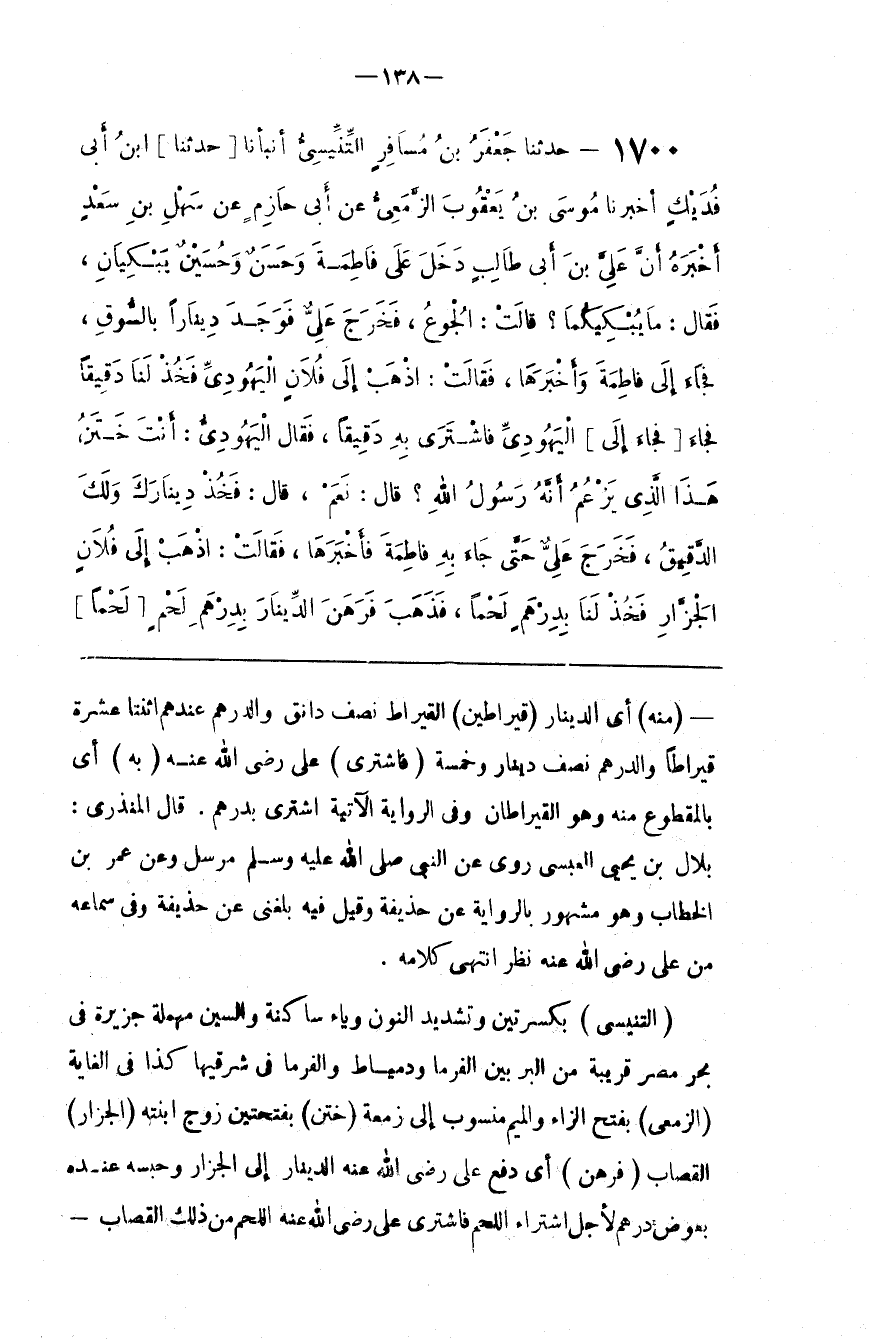 —١٣٨—
١٧٠٠ — حدثنا جَعْفَرُ بنُ مُسَافِرٍ التِّنِّيسِىُّ أنبأنا [ حدثنا ] ابنُ أَبى
فُدَيْكٍ أخبرنا مُوسَى بنُ يَعْقُوبَ الزَّمَعِىُّ عن أَبى حازِمٍ عن سَهْلِ بنِ سَعْدٍ
أَخْبَرَهُ أنَّ عَلِىَّ بنَ أَبى طَالِبٍ دَخَلَ عَلَى فَاطِمَـةَ وَحَسَنٌ وَحُسَيْنٌ يَبْـكِيَانِ ،
فَقال : مايُبْـكِيكُمَا ؟ قالَتْ : الْجوعُ ، فَخَرَجَ عَلِىٌّ فَوَجَـدَ دِينَاراً بالسُّوقِ ،
فَجَاءَ إِلَى فاطِمَةَ وَأَخْبَرَهَا ، فَقَالَتْ : اذْهَبْ إِلَى فُلَانٍ الْيَهُودِىِّ فَخُذْ لَنَا دَقِيقاً
فجاءَ [ فجاءَ إلَى ] الْيَهُودِىِّ فاشْـتَرَى بِهِ دَقِيقاً ، فَقال الْيَهُودِىُّ : أَنْتَ خَـتَنُ
هَـذَا الَّذِى يَزْعُمُ أنَّهُ رَسُولُ اللهِ ؟ قال : نَعَمْ ، قال : فَخُذْ دِينَارَكَ وَلَكَ
الدَّقِيقُ ، فَخَرَجَ عَلِىٌّ حَتَّى جَاءَ بِهِ فاطِمَةَ فأَخْبَرَهَا ، فقَالَتْ : اذْهَبْ إِلَى فُلَانٍ
الْجزَّارِ فَخُذْ لَنَا بِدِرْهَمٍ لَحْماً ، فَذَهَبَ فَرَهَنَ الدِّينَارَ بِدِرْهَمِ لَحْمٍ [ لَحْماً ]
— (منه) أى الدينار (قيراطين) القيراط نصف دانق والدرهم عندهم اثنتا عشرة
قيراطاً والدرهم نصف دينار وخمسة ( فاشترى ) على رضى الله عنـه ( به ) أى
بالمقطوع منه وهو القيراطان وفى الرواية الآتية اشترى بدرهم . قال المنذرى :
بلال بن يحيى العبسى روى عن النبى صلى الله عليه وسـلم مرسل وعن عمر بن
الخطاب وهو مشهور بالرواية عن حذيفة وقيل فيه بلغنى عن حذيفة وفى سماعه
من على رضى الله عنه نظر انتهى كلامه .
( التنيسى ) بكسرتين وتشديد النون وياء ساكنة والسين مهملة جزيرة فى
بحر مصر قريبة من البر بين الفرما ودميـاط والفرما فى شرقيها كذا فى الغاية
(الزمعى) بفتح الزاء والميم منسوب إلى زمعة (ختن) بفتحتين زوج ابنته (الجزار)
القصاب ( فرهن ) أى دفع على رضى الله عنه الدينار إلى الجزار وحبسه عنـده
بعوض درهم لأجل اشتراء اللحم فاشترى على رضى الله عنه اللحم من ذلك القصاب —